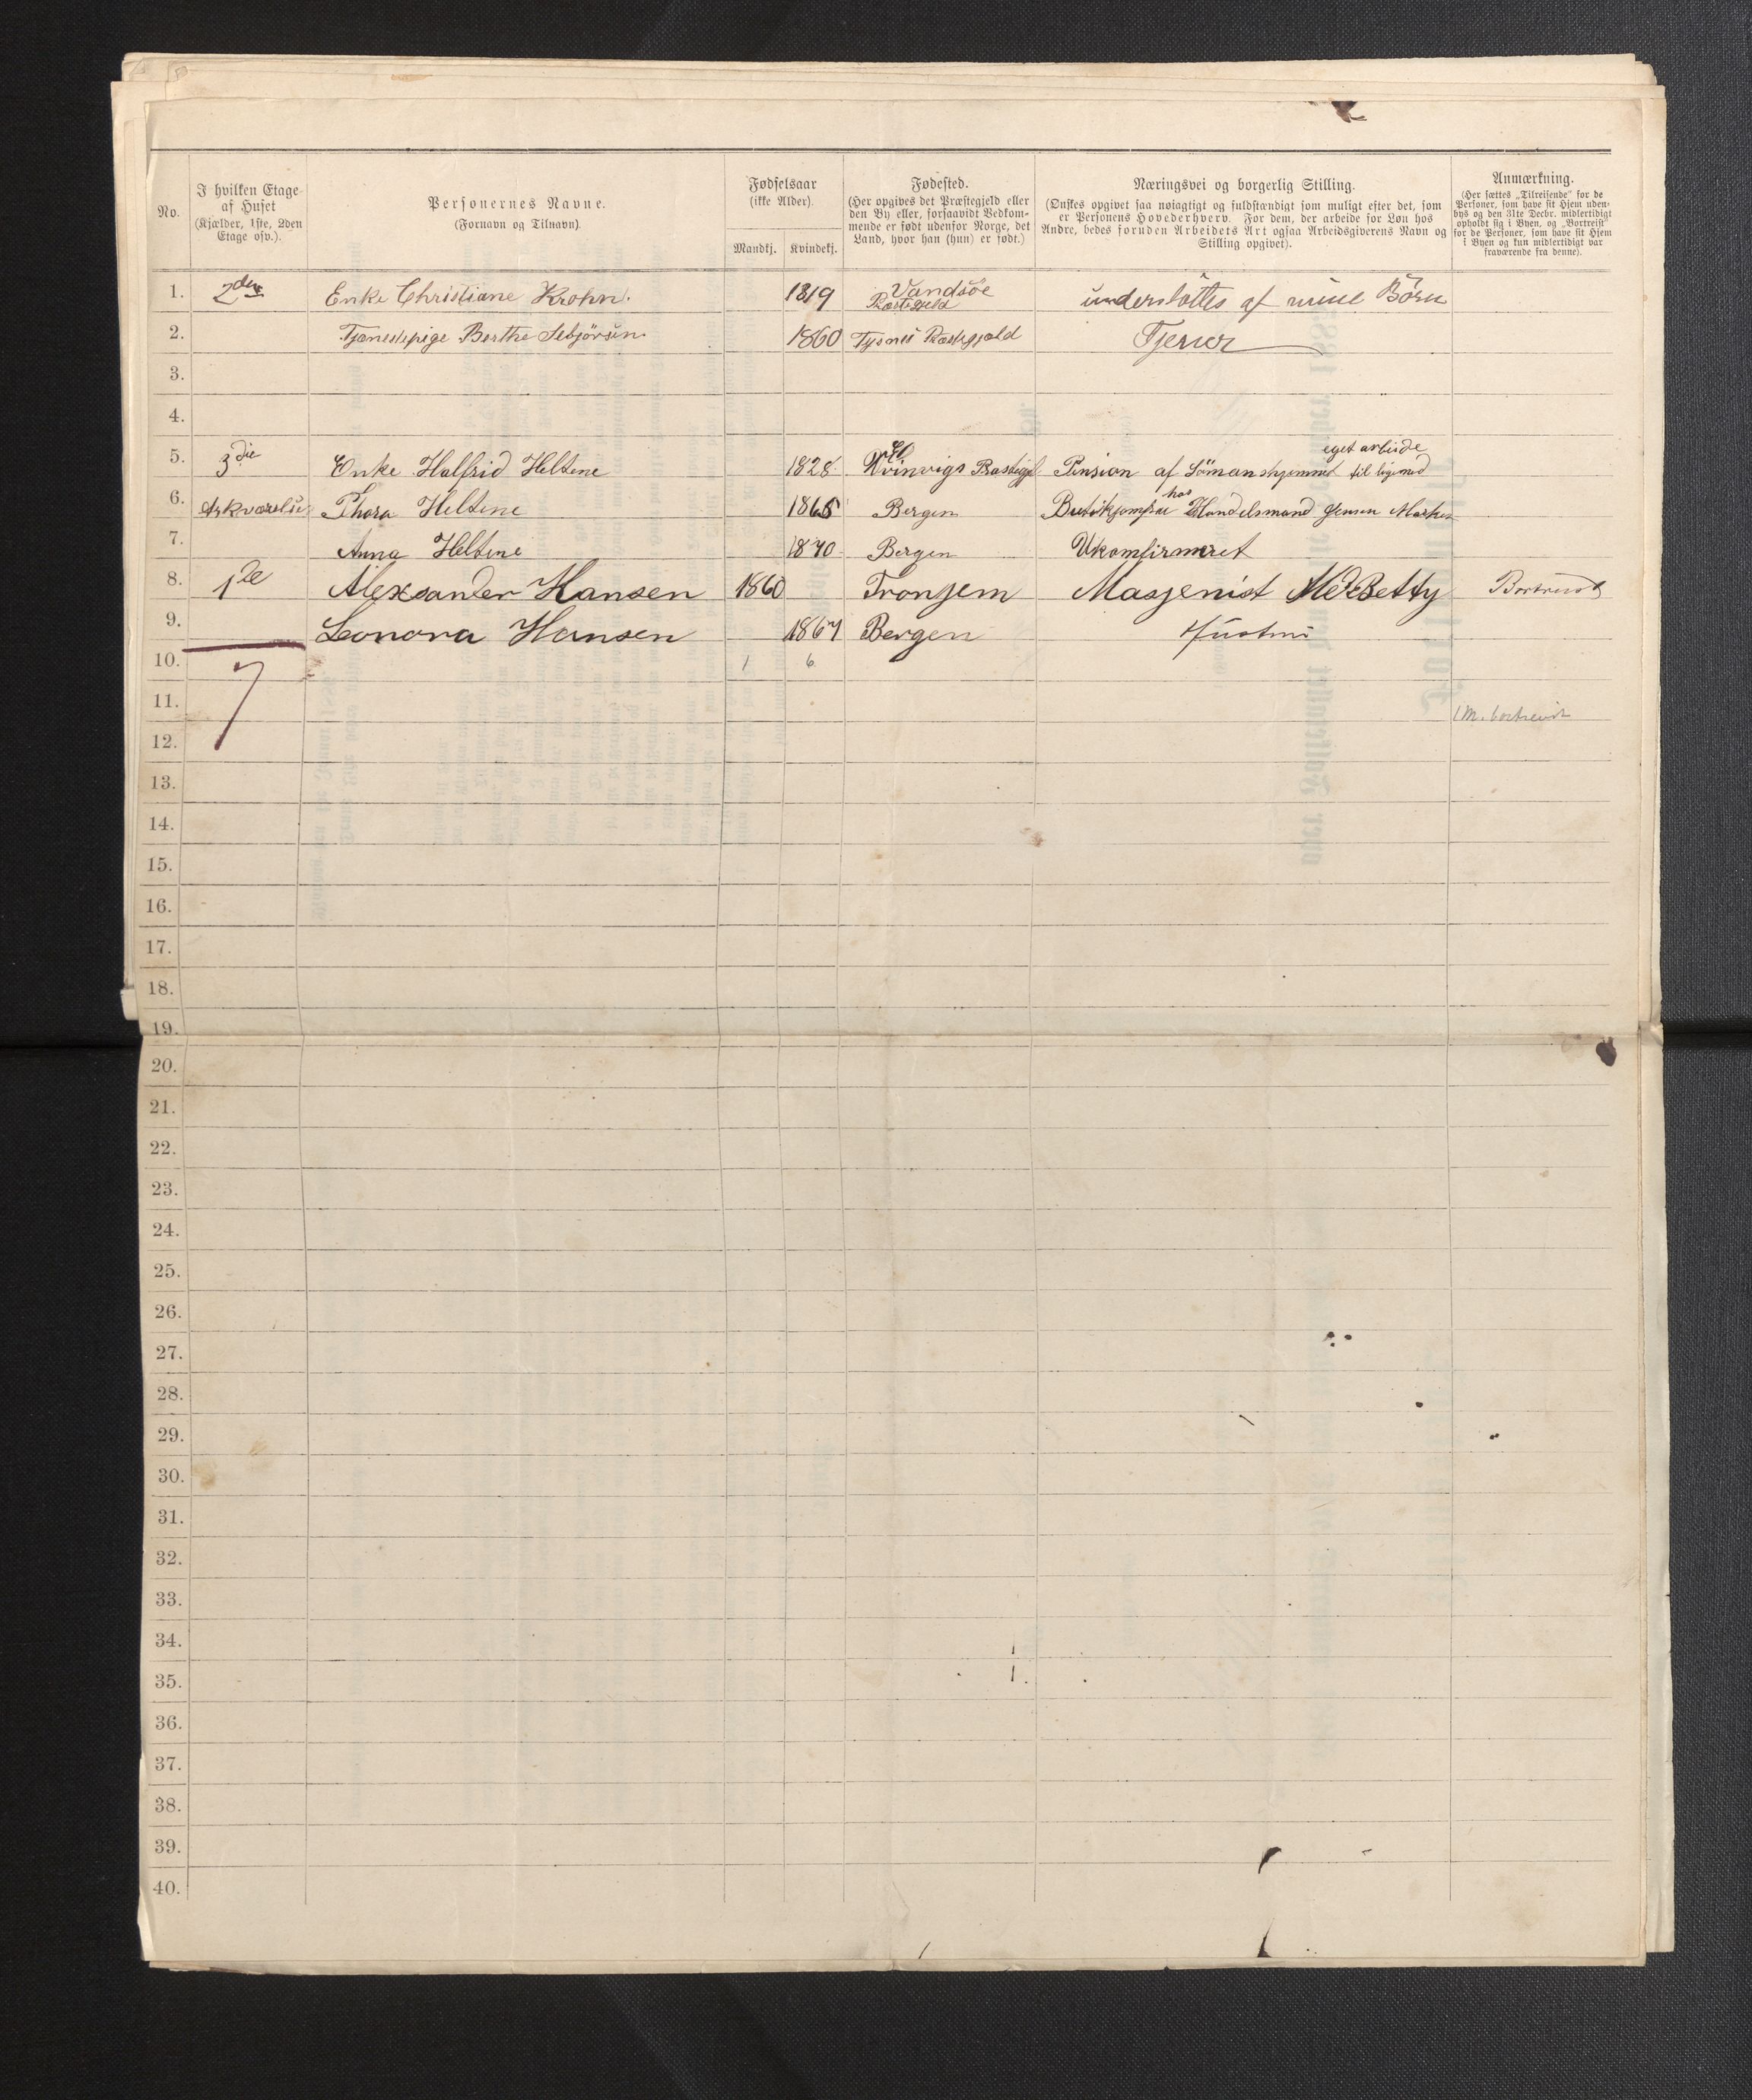 No.
I hvilken Etage
af Huset
(Kjælder, 1ste, 2den
Etage osv.).
Personernes Navne.
(Fornavn og Tilnavn).
Fødselsaar
(ikke Alder).
Mandkj. Kvindekj.
Fødested.
(Her opgives det Præstegjeld eller
den By eller, forsaavidt Vedkom-
mende er født udenfor Norge, det
Land, hvor han (hun) er født.)
Næringsvei og borgerlig Stilling.
(Ønskes opgivet saa nøiagtigt og fuldstændigt som muligt efter det, som
er Personens Hovederhverv. For dem, der arbeide for Løn hos
Andre, bedes foruden Arbeidets Art ogsaa Arbeidsgiverens Navn og
Stilling opgivet).
Anmærkning.
(Her sættes „Tilreisende" for de
Personer, som have sit Hjem uden-
bys og den 31te Decbr. midlertidigt
opholdt sig i Byen, og „Bortreist"
for de Personer, som have sit Hjem
i Byen og kun midlertidigt var
fraværende fra denne).
1. 2den Enke Christiane Krohn. 1819 Vandsöe
Præstegjeld
understöttes af mine Börn
2. Tjenestepige Berthe Sebjörsen 1860 Tysnes Præstegjæld Tjener
3.
4.
eget arbeide
5. 3die Enke Halfrid Heltene 1828 Præstegjel Pension af Sömanshjemmet til ligemed
hos
6. Thora Heltene 1868 Bergen Butikjomfru Handelsmand Jensen
7. Anna Heltene 1870 Bergen Ukomfirmeret
8. 1ste Alexsander Hansen 1860 Tronjem Masjenist Betty Bortreist
9. Leonora Hansen 1867 Bergen Hustru
10. 7 1 6
11. 1 m. bortreist
12.
13.
14.
15.
16.
17.
18.
19.
20.
21.
22.
23.
24.
25.
26.
27.
28.
29.
30.
31.
32.
33.
34.
35.
36.
37.
38.
39.
40.